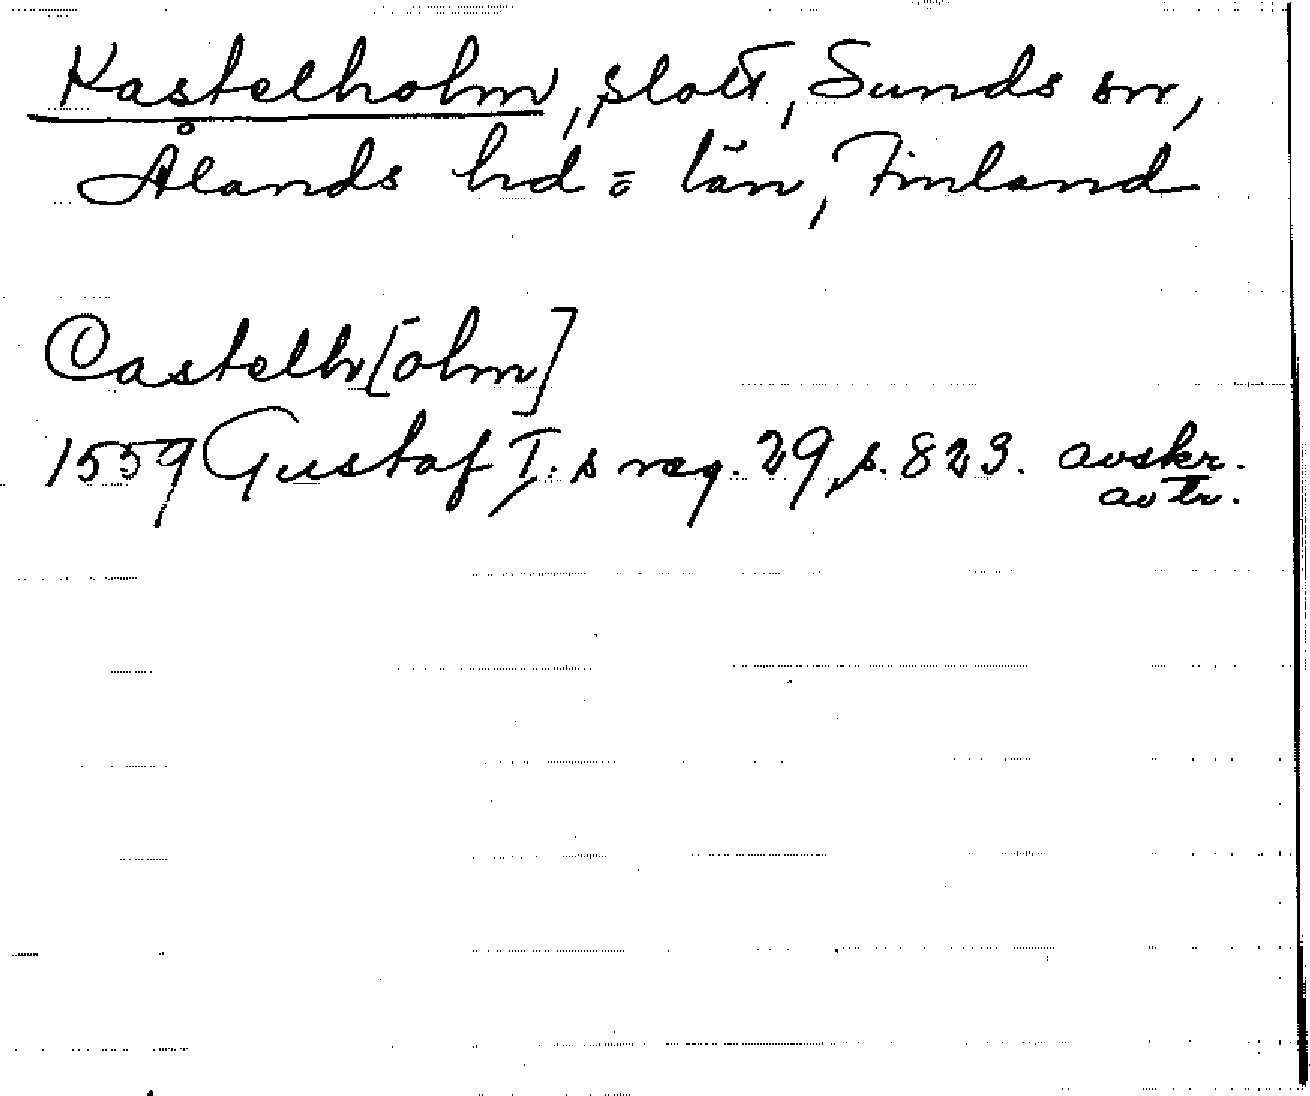 Kastelholm, slott, Sunds sn,
Ålands hd o län, Finland
Castelh[olm]
1559 Gustaf I:s reg. 29, s. 823. avskr.
av tr.